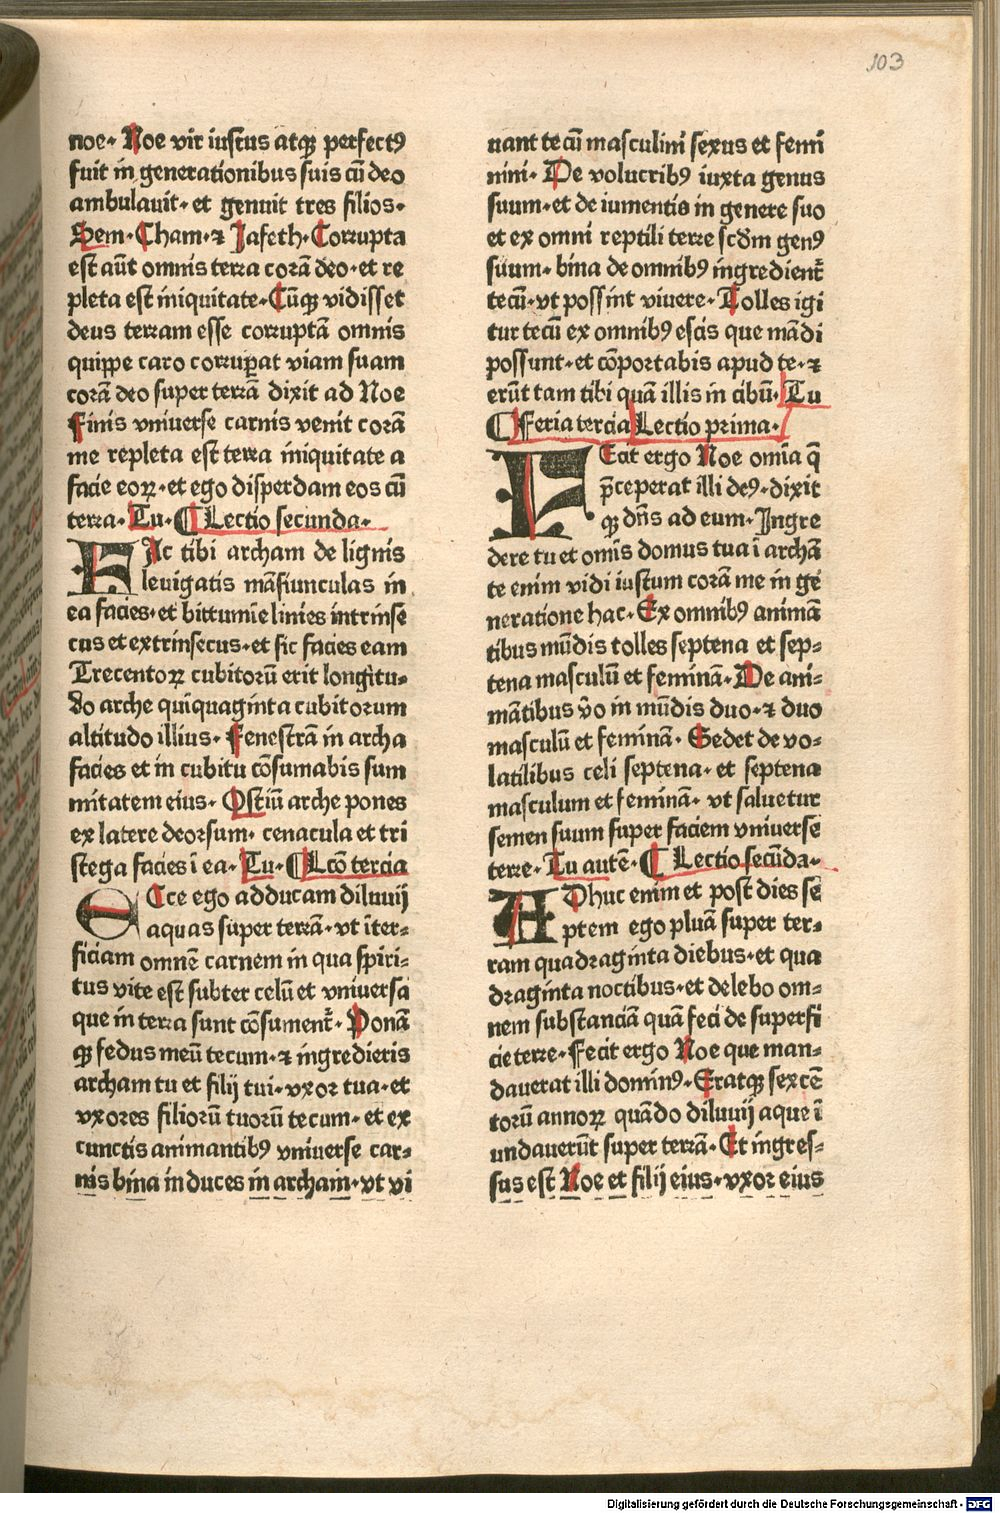 103
noe. Noe vir iustus atqꝫ perfectꝰ
fuit in generationibus suis cū deo
ambulauit. et genuit tres filios.
Sem. Cham. ⁊ Jafeth. Corrupta
est aūt omnis terra corā deo. et re
pleta est iniquitate. Cūqꝫ vidisset
deus terram esse corruptā omnis
quippe caro corruꝑat viam suam
corā deo super terrā dixit ad Noe
Finis vniuerse carnis venit corā
me repleta est terra iniquitate a
facie eoꝝ. et ego disperdam eos cū
terra. Tu. ¶ Lectio secunda.
FAc tibi archam de lignis
leuigatis māsiunculas in
ea facies. et bittumīe linies intrinse
cus et extrinsecus. et sic facies eam
Trecentoꝝ cubitorū erit longitu⸗
do arche quīquaginta cubitorum
altitudo illius. Fenestrā in archa
facies et in cubitu cōsumabis sum
mitatem eius. Ostiū arche pones
ex latere deorsum. cenacula et tri
stega facies ī ea. Tu. ¶ Lcō tercia
ECce ego adducam diluuij
aquas super terrā. vt īter⸗
ficiam omnē carnem in qua spiri⸗
tus vite est subter celū et vniuersa
que in terra sunt cōsumentˉ. Ponā
qꝫ fedus meū tecum. ⁊ ingredieris
archam tu et filij tui. vxor tua. et
vxores filiorū tuorū tecum. et ex
cunctis animantibꝰ vniuerse car⸗
nis bina induces in archam. vt vi
uant tecū masculini sexus et femi
nini. De volucribꝰ iuxta genus
suum. et de iumentis in genere suo
et ex omni reptili terre scd̄m genꝰ
suum. bina de omnibꝰ ingredientˉ
tecū. vt possint viuere. Tolles igi
tur tecū ex omnibꝰ escis que mādi
possunt. et cōportabis apud te. ⁊
erūt tam tibi quā illis in cibū. Tu
¶ Feria tercia Lectio prima.
FEcit ergo Noe omīa q̄
p̄ceperat illi deꝰ. dixit
qꝫ dn̄s ad eum. Ingre
dere tu et omīs domus tua ī archā
te enim vidi iustum corā me in ge
neratione hac. Ex omnibꝰ animā
tibus mūdis tolles septena et sep⸗
tena masculū et feminā. De ani⸗
mātibus v̄o in mūdis duo. ⁊ duo
masculū et feminā. Sedet de vo⸗
latilibus celi septena. et septena
masculum et feminā. vt saluetur
semen suum super faciem vniuerse
terre. Tu autē. ¶ Lectio secūda.
ADhuc enim et post dies se
ptem ego pluā super ter⸗
ram quadraginta diebus. et qua
draginta noctibus. et delebo om⸗
nem substanciā quā feci de superfi
cie terre. Fecit ergo Noe que man⸗
dauerat illi dominꝰ. Eratqꝫ sexcē
torū annoꝝ quādo diluuij aque ī
undauerūt super terrā. Et ingres⸗
sus est Noe et filij eius. vxor eius
Digitalisierung gefördert durch die Deutsche Forschungsgemeinschaft - DFG